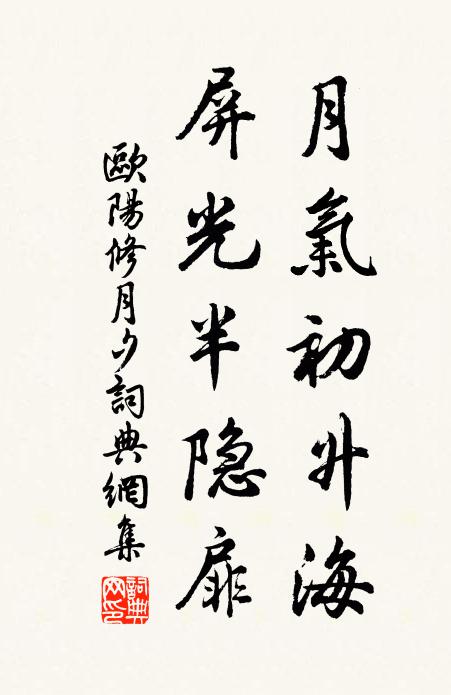 月氣初升海
屏光半隐扉
歐陽修月夕詞典網集
詞典網印